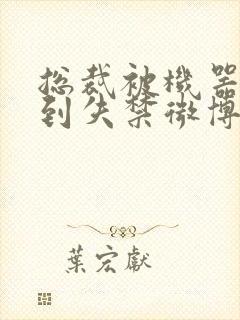 总裁被機器
到失禁微博
葉宏獻